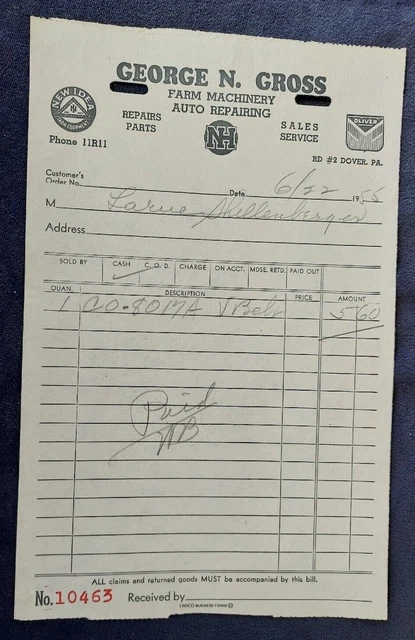 GEORGE N. GROSS
FARM MACHINERY
AUTO REPAIRING
NEW IDEA
FARM EQUIPMENT
REPAIRS
PARTS
NH
SALES
SERVICE
OLIVER
Phone 11R11
RD #2 DOVER, PA.
Customer's
Order No. Date 6/22 1955
M Larue Shellenberger
Address
SOLD BY CASH C. O. D. CHARGE ON ACCT. MDSE. RETD. PAID OUT
QUAN. DESCRIPTION PRICE AMOUNT
1 CO-8017A V Belt 5 60
Paid
ALL claims and returned goods MUST be accompanied by this bill.
No. 10463 Received by